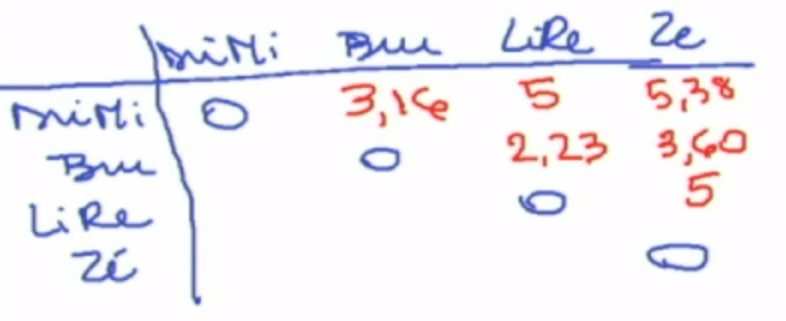 MiMi Bru LiRe Ze
MiMi 0 3,16 5 5,38
Bru 0 2,23 3,60
LiRe 0 5
Zé 0